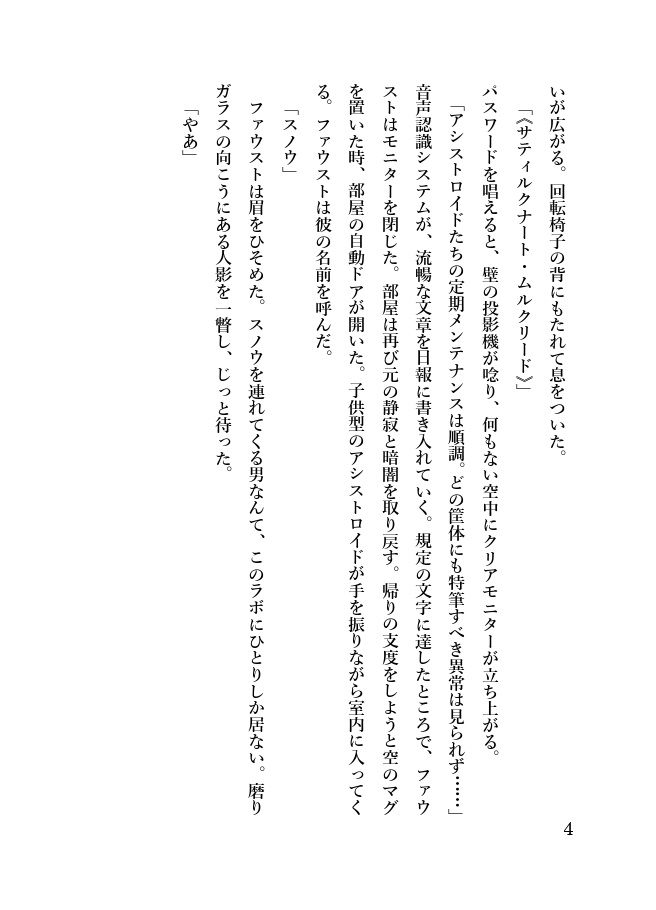 いが広がる。回転椅子の背にもたれて息をついた。
「《サティルクナート・ムルクリード》」
パスワードを唱えると、壁の投影機が唸り、何もない空中にクリアモニターが立ち上がる。
「アシストロイドたちの定期メンテナンスは順調。どの筐体にも特筆すべき異常は見られず……」
音声認識システムが、流暢な文章を日報に書き入れていく。規定の文字に達したところで、ファウ
ストはモニターを閉じた。部屋は再び元の静寂と暗闇を取り戻す。帰りの支度をしようと空のマグ
を置いた時、部屋の自動ドアが開いた。子供型のアシストロイドが手を振りながら室内に入ってく
る。ファウストは彼の名前を呼んだ。
「スノウ」
ファウストは眉をひそめた。スノウを連れてくる男なんて、このラボにひとりしか居ない。磨り
ガラスの向こうにある人影を一瞥し、じっと待った。
「やあ」
4